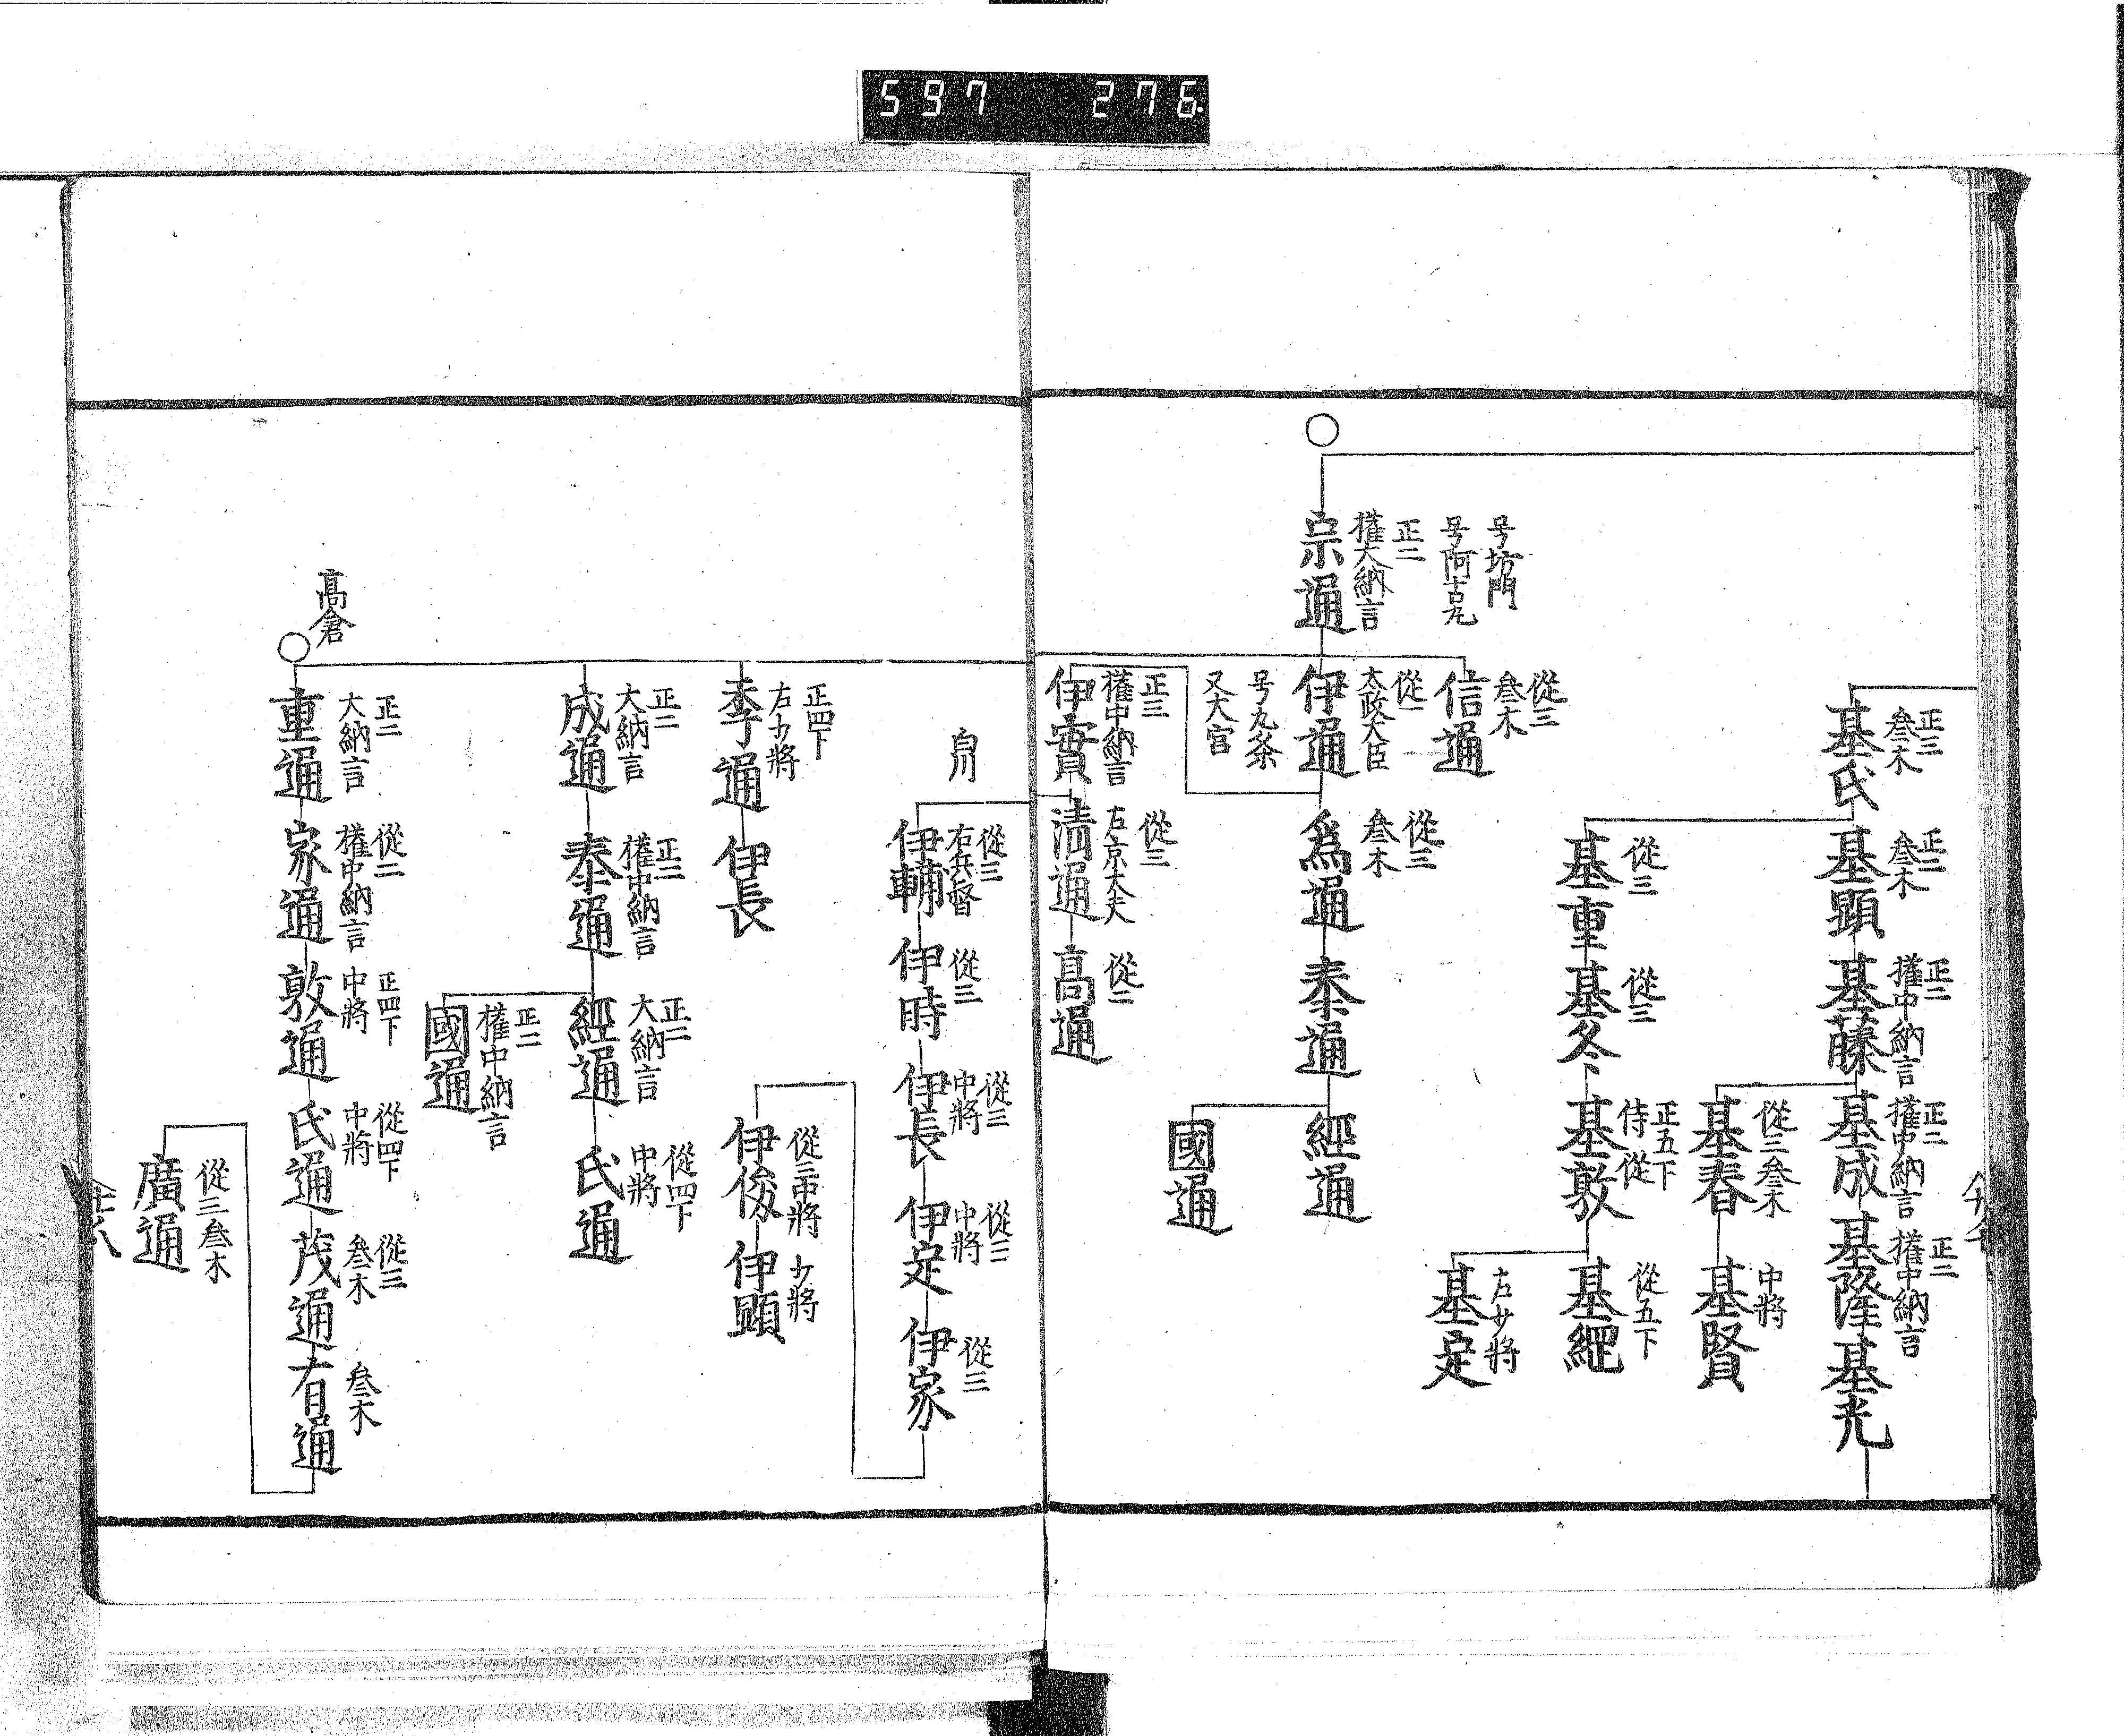 597 276
基氏
正三
叅木
基顕
正二
叅木
基藤
正二
權中納言
基成
正二
權中納言
基隆
正二
權中納言
基光
基春
從三叅木
基賢
中將
基重
從三
基冬
從三
基敦
正五下
侍從
基経
從五下
基定
左少將
宗通
号坊門
号阿古丸
正二
權大納言
信通
從三
叅木
伊通
從一
太政大臣
号九条
又大宮
為通
從三
叅木
泰通
經通
國通
伊實
正三
權中納言
清通
從三
左京大夫
高通
從二
伊輔
從三
右兵督
伊時
從三
伊長
從三
中將
伊定
從三
中將
伊家
從三
伊俊
從三中將
伊顕
少將
季通
正四下
右少將
伊長
成通
正二
大納言
泰通
正二
權中納言
經通
正二
大納言
氏通
從四下
中將
國通
正二
權中納言
高倉
重通
正二
大納言
家通
從二
權中納言
敦通
正四下
中將
氏通
從四下
中將
茂通
從三
叅木
有通
叅木
廣通
從三叅木